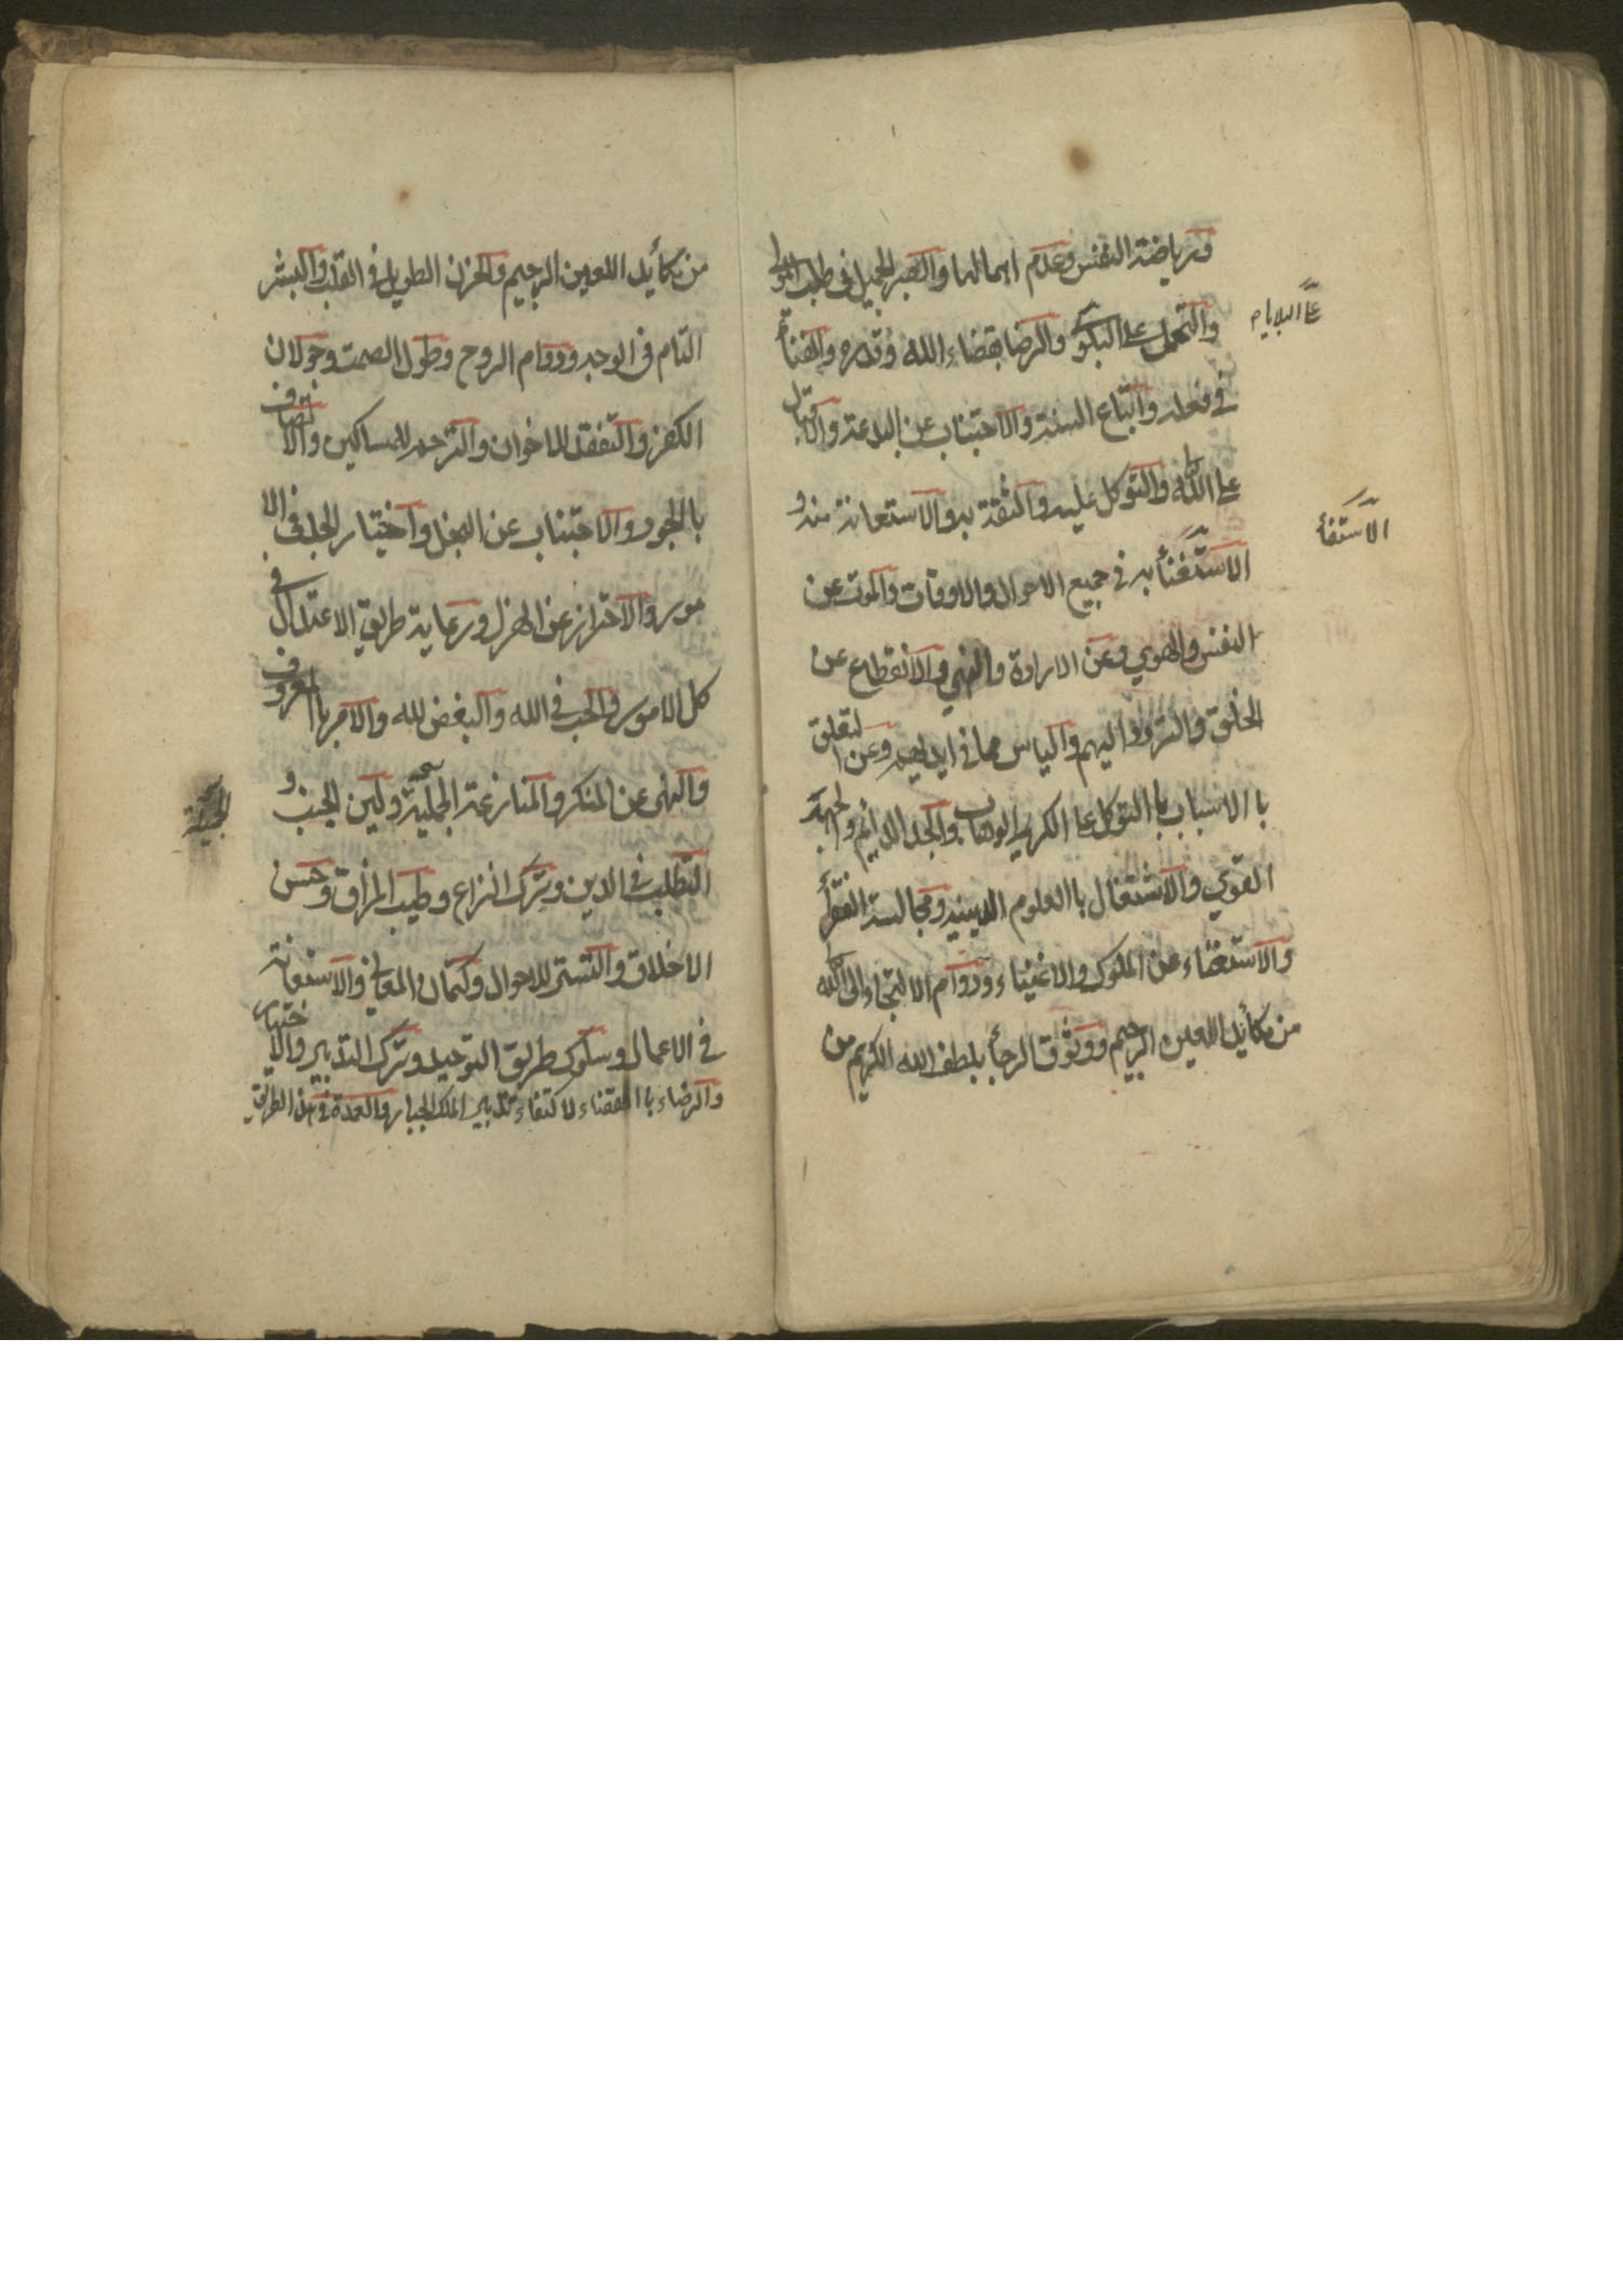 ورياضة النفس وعدم اهمالها والصبر الجميل في طلب المولى
والتحمل على البلو والرضا بقضاء الله وقدره والفناء
على البلايام
في فعله واتباع السنة والاجتناب عن البدعة والاقبال
على الله والتوكل عليه والثقة به والاستعانة منه و
الاستغنأ به في جميع الاحوال والاوقات والموت عن
النفس والهوي وعن الارادة والنهي والانقطاع عن
الخلق والتردد اليهم والياس مما في ايديهم وعن التعلق
با الاسباب با التوكل على الكريم الوهاب والجد الدائم والجهد
القوي والاشتغال با العلوم الدينية ومجالسة الفقرأ
والاستغناء عن الملوك والاغنياء ودوام الالتجاء الى الله
من مكأيد اللعين الرجيم ووثوق الرجأ بلطف الله الكريم من
من مكأيد اللعين الرجيم والحزن الطويل في القلب والبشر
التام في الوجه ودوام الروح وطول الصمت وجولان
الكفر والتفقد للاخوان والترحم للمساكين والاتصاف
با الجود والاجتناب عن البخل واختيار الجد في الا
مور والاحتراز عن الهزل ورعاية طريق الاعتدال في
كل الامور والحب في الله والبغض لله والامر با المعروف
والنهى عن المنكر والمنازعة الجميلة ولين الجنب و
التطلب في الدين وترك النزاع وطيب المزاق وحسن
الاخلاق والتستر للاحوال وكتمان المعاني والاستعانة
في الاعمال وسلوك طريق التوحيد وترك التدبير والاختيار
والرضاء با القضاء لاكتفاء تدبير الملك الجبار والعمدة في هذا الطريق